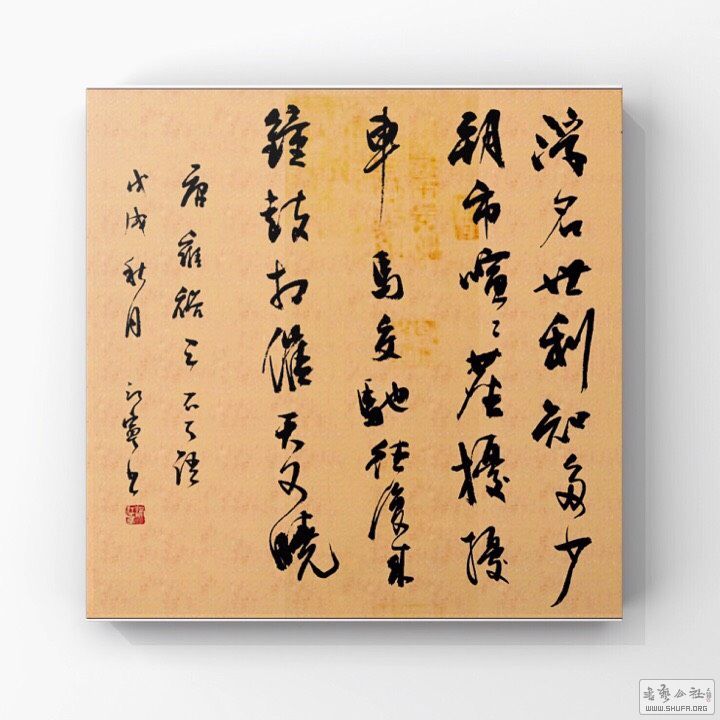 浮名世利知多少
朝市喧々塵擾擾
車馬交馳往復来
鐘鼓相催天又曉
唐雍裕之不了語
戊戌秋月
書藝公社
WWW.SHUFA.ORG